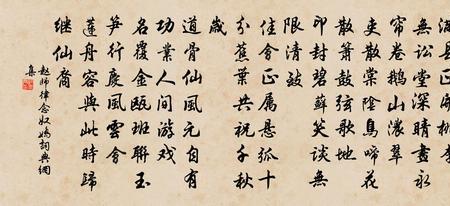 無訟堂深晴晝永
帘卷鹅山濃翠
吏散棠陰鳥啼花
散簫鼓弦歌地
印封碧蘚笑談無
限清致
佳會正屬懸弧十
分蕉葉共祝千秋
歲
道骨仙風元自有
功業人間游戏
名覆金甌班聯玉
笋行慶風雲會
蓮舟容與此時歸
继仙裔
赵師律念奴嬌詞典網
集